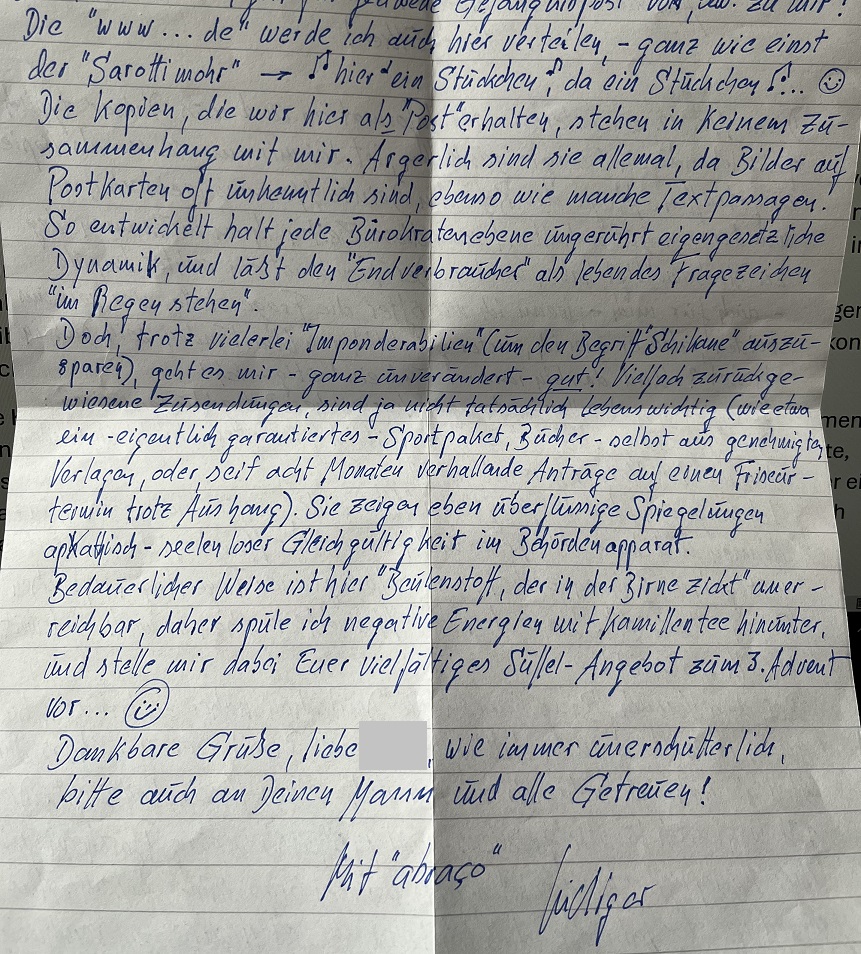 Gefängnispost von, bzw. zu mir!
Die "www... de" werde ich auch hier verteilen, - ganz wie einst
der "Sarottimohr" → ♫ hier ein Stückchen ♫, da ein Stückchen ♫... ☺
Die Kopien, die wir hier als "Post" erhalten, stehen in keinem Zu-
sammenhang mit mir. Ärgerlich sind sie allemal, da Bilder auf
Postkarten oft unkenntlich sind, ebenso wie manche Textpassagen.
So entwickelt halt jede Bürokratenebene ungerührt eigengesetzliche
Dynamik, und läßt den "Endverbraucher" als lebendes Fragezeichen
"im Regen stehen".
Doch, trotz vielerlei "Imponderabilien" (um den Begriff "Schikane" auszu-
sparen), geht es mir - ganz unverändert - gut! Vielfach zurückge-
wiesene Zusendungen, sind ja nicht tatsächlich lebenswichtig (wie etwa
ein - eigentlich garantiertes - Sportpaket, Bücher - selbst aus genehmigten
Verlagen, oder seit acht Monaten verhallende Anträge auf einen Friseur-
termin trotz Aushang). Sie zeigen eben überflüssige Spiegelungen
apathisch - seelenloser Gleichgültigkeit im Behördenapparat.
Bedauerlicher Weise ist hier "Beulenstoff, der in der Birne zickt" uner-
reichbar, daher spüle ich negative Energien mit Kamillentee hinunter,
und stelle mir dabei Euer vielfältiges Süffel-Angebot zum 3. Advent
vor... ☺
Dankbare Grüße, liebe , wie immer unerschütterlich,
bitte auch an Deinen Mann und alle Getreuen!
Mit "abraço"